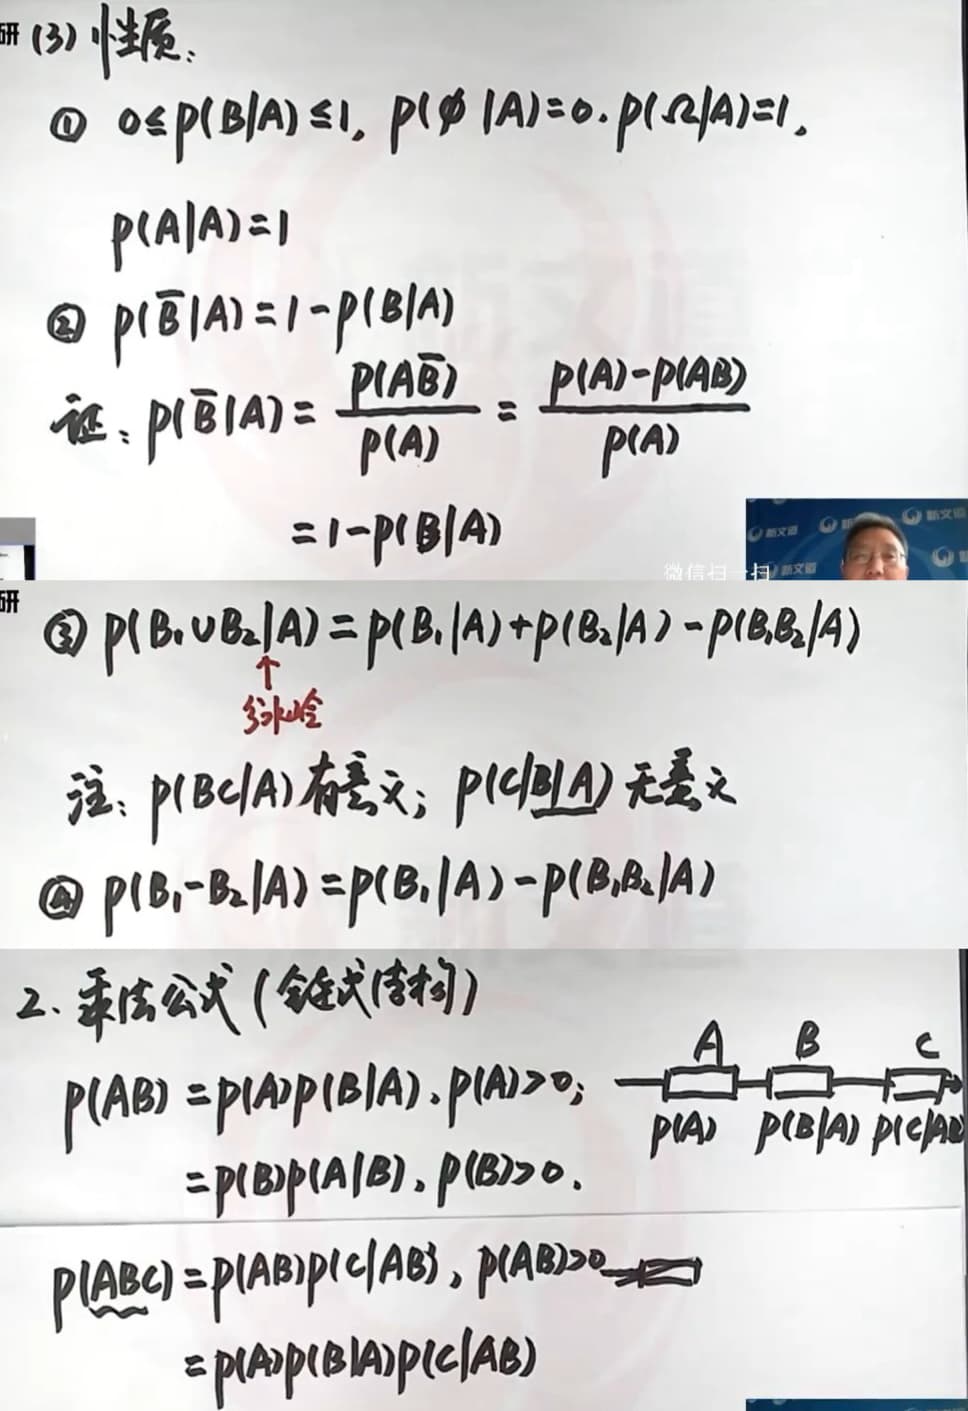 研 (3) 性质:
① 0≤P(B|A)≤1, P(φ|A)=0. P(Ω|A)=1,
P(A|A)=1
② P(B̅|A)=1-P(B|A)
证: P(B̅|A)= P(AB̅)/P(A) = P(A)-P(AB)/P(A)
=1-P(B|A)
新文道
新文道
新文道
微信扫一扫
研
③ P(B₁∪B₂|A)=P(B₁|A)+P(B₂|A)-P(B₁B₂|A)
↑
分水岭
注: P(BC|A)有意义; P(C|B|A)无意义
④ P(B₁-B₂|A)=P(B₁|A)-P(B₁B₂|A)
2. 乘法公式(链式结构)
A B C
P(AB)=P(A)P(B|A), P(A)>0;
P(A) P(B|A) P(C|AB)
=P(B)P(A|B), P(B)>0.
P(ABC)=P(AB)P(C|AB), P(AB)>0
=P(A)P(B|A)P(C|AB)